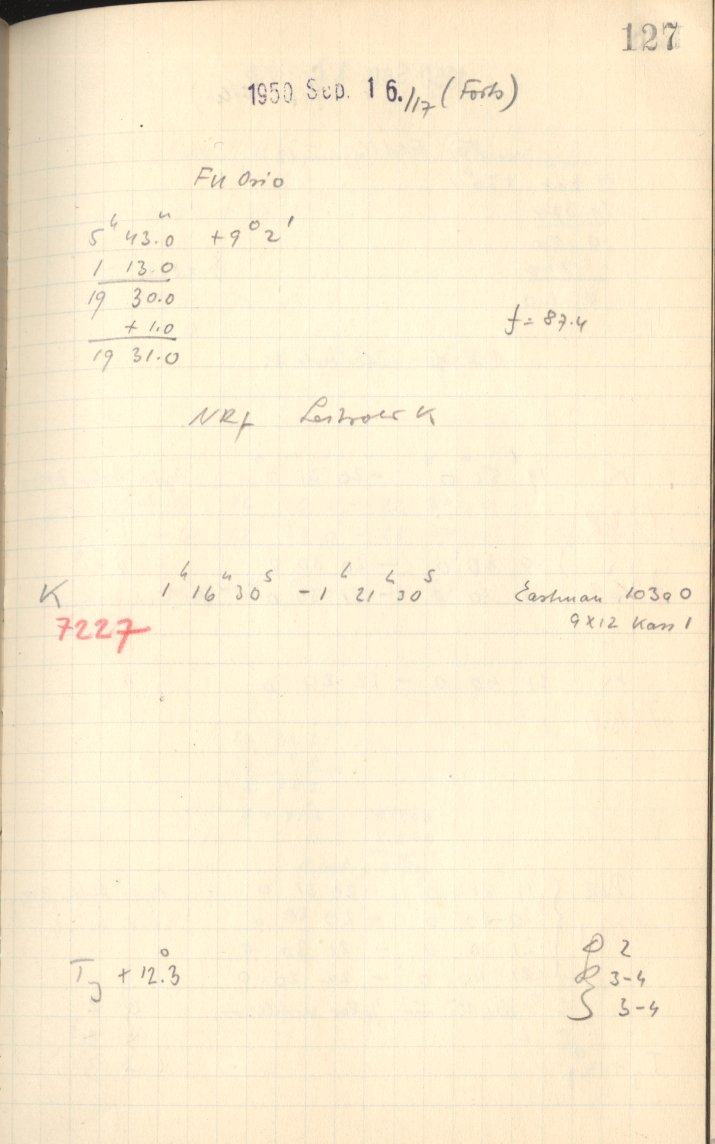 127
1950 Sep. 16./17 (Forts)
FU Orio
5ʰ 43.0ᵐ +9° 2'
1 13.0
19 30.0
+ 1.0
19 31.0
f = 87.4
NRf K
K 1ʰ 16ᵐ 30ˢ - 1ʰ 21ᵐ 30ˢ Eastman 103a0
7227 9x12 Kass 1
+ 12.3° 2
3-4
3-4